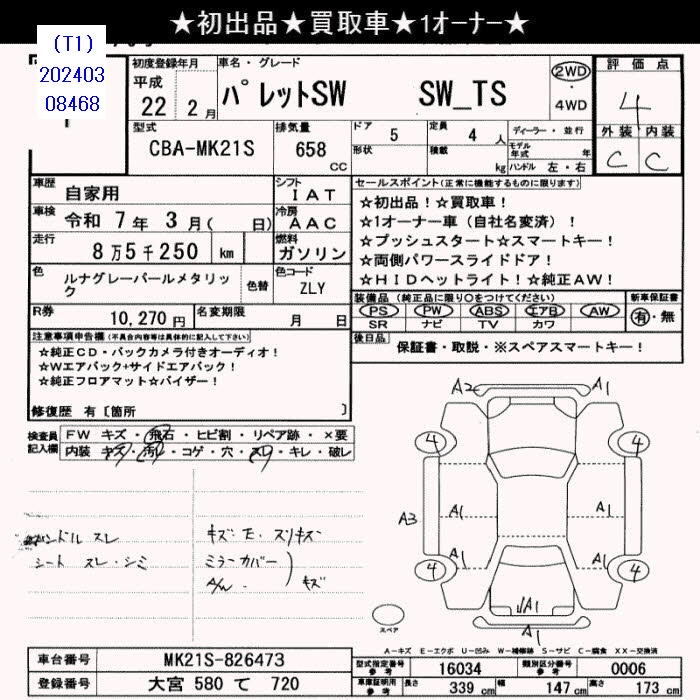 ★初出品★買取車★1オーナー★
(T1)
202403
08468
初度登録年月
平成
22 2月
車名・グレード
パレットSW SW_TS
2WD
・
4WD
評価点
4
外装 内装
C C
型式
CBA-MK21S
排気量
658
CC
ドア 5
定員 4 人
形状
積載 kg
ディーラー・並行
モデル年式 年
ハンドル 左・右
車歴 自家用
シフト IAT
車検 令和 7年 3月( 日)
冷房 AAC
走行 8万5千250 km
燃料 ガソリン
色 ルナグレーパールメタリック
色替
色コード ZLY
R券 10,270円
名変期限 月 日
セールスポイント(正常に機能するものに限ります)
☆初出品!☆買取車!
☆1オーナー車(自社名変済)!
☆プッシュスタート☆スマートキー!
☆両側パワースライドドア!
☆HIDヘットライト!☆純正AW!
装備品(純正品に限り○をつけてください)
PS PW ABS エアB AW
SR ナビ TV カワ
新車保証書
有・無
後日品 保証書・取説・※スペアスマートキー!
注意事項申告欄(不具合内容等は具体的に記入して下さい)
☆純正CD・バックカメラ付きオーディオ!
☆Wエアバック+サイドエアバック!
☆純正フロアマット☆バイザー!
修復歴 有〔箇所 〕
検査員記入欄
FW キズ・飛石・ヒビ割・リペア跡・×要
内装 キズ・汚レ・コゲ・穴・スレ・キレ・破レ
ハンドル スレ
シート スレ・シミ
キズ・E・スリキズ
ミラーカバー
A/W
キズ
A2 A1
4 4
A1 A1
A3
A1 A1
4 4
A1
A1
スペア
A-キズ E-エクボ U-凹み W-補修跡 S-サビ C-腐食 XX-交換済
車台番号 MK21S-826473
登録番号 大宮 580 て 720
型式指定番号 参考 16034
類別区分番号 参考 0006
車庫証明用 参考 長さ 339 cm 幅 147 cm 高さ 173 cm